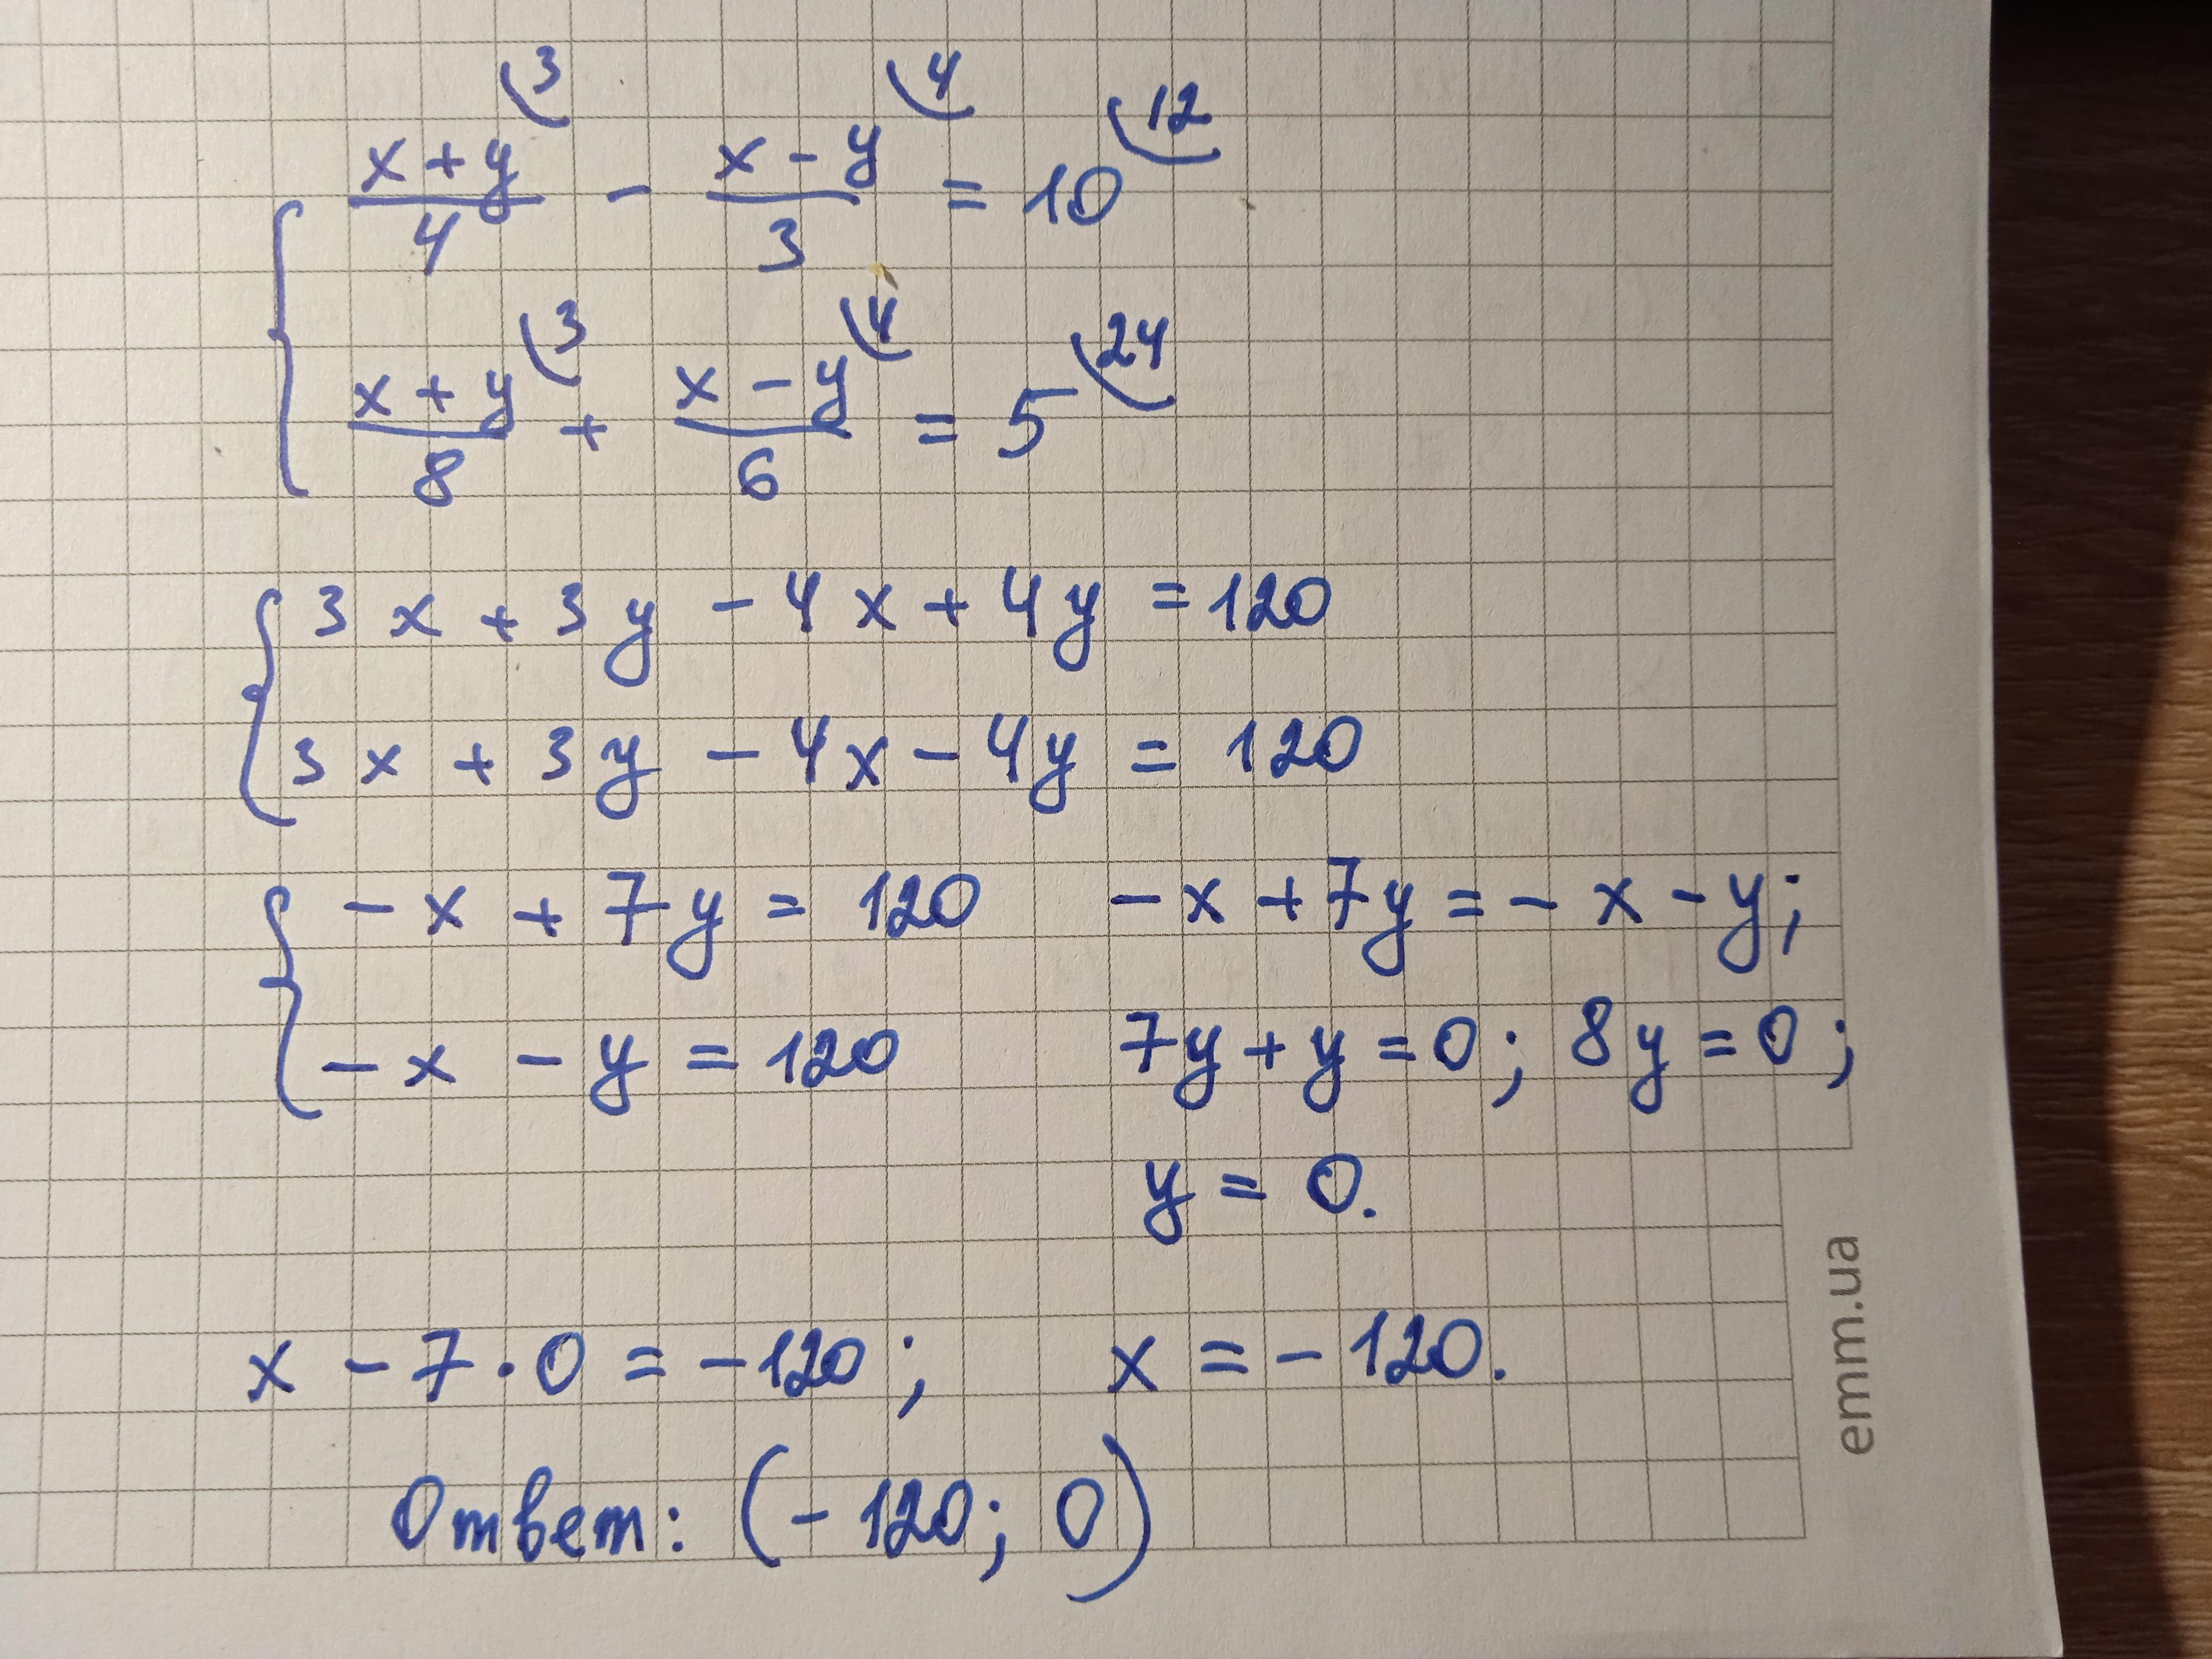 (x+y)/4 ⁽³ - (x-y)/3 ⁽⁴ = 10 ⁽¹²
(x+y)/8 ⁽³ + (x-y)/6 ⁽⁴ = 5 ⁽²⁴
3x + 3y - 4x + 4y = 120
3x + 3y - 4x - 4y = 120
-x + 7y = 120 -x + 7y = -x - y;
-x - y = 120 7y + y = 0; 8y = 0;
y = 0.
x - 7·0 = -120; x = -120.
Ответ: (-120; 0)
emm.ua